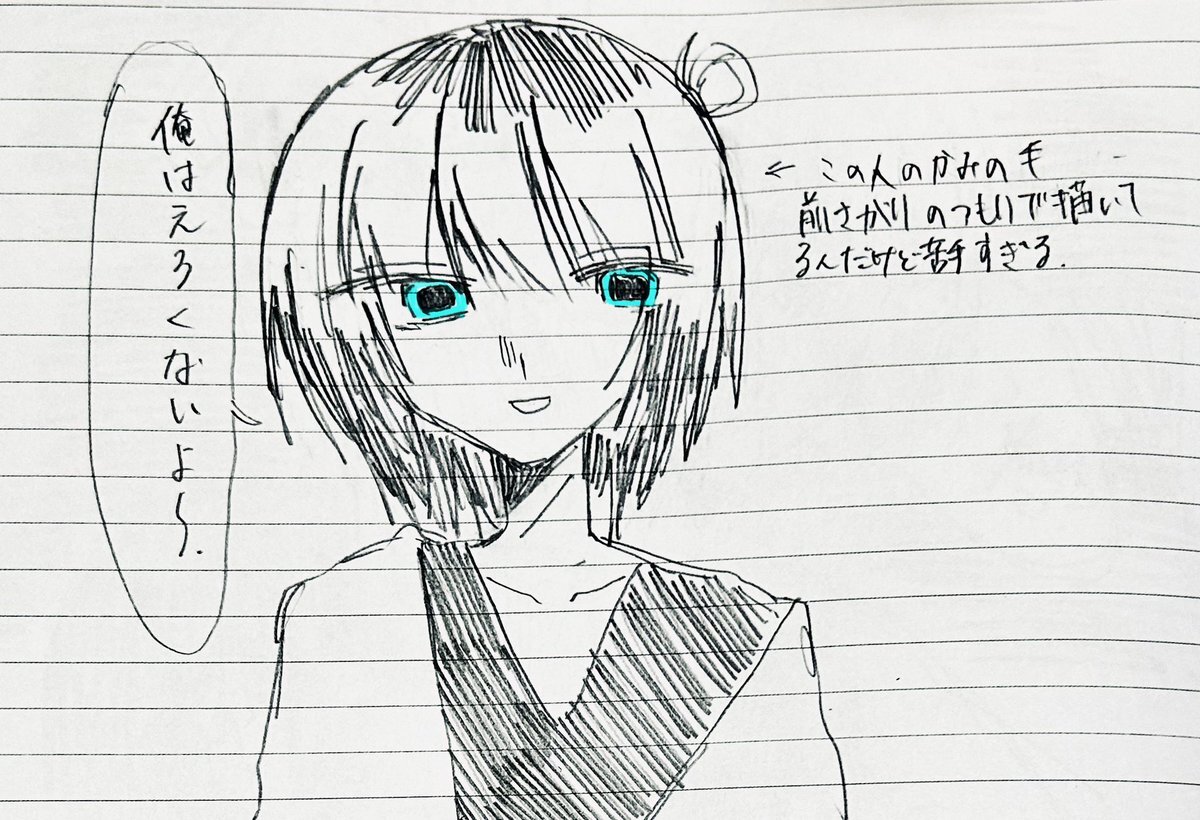 俺はえろくないよ〜.
← この人のかみの毛
前さがりのつもりで描いて
るんだけど苦手すぎる.